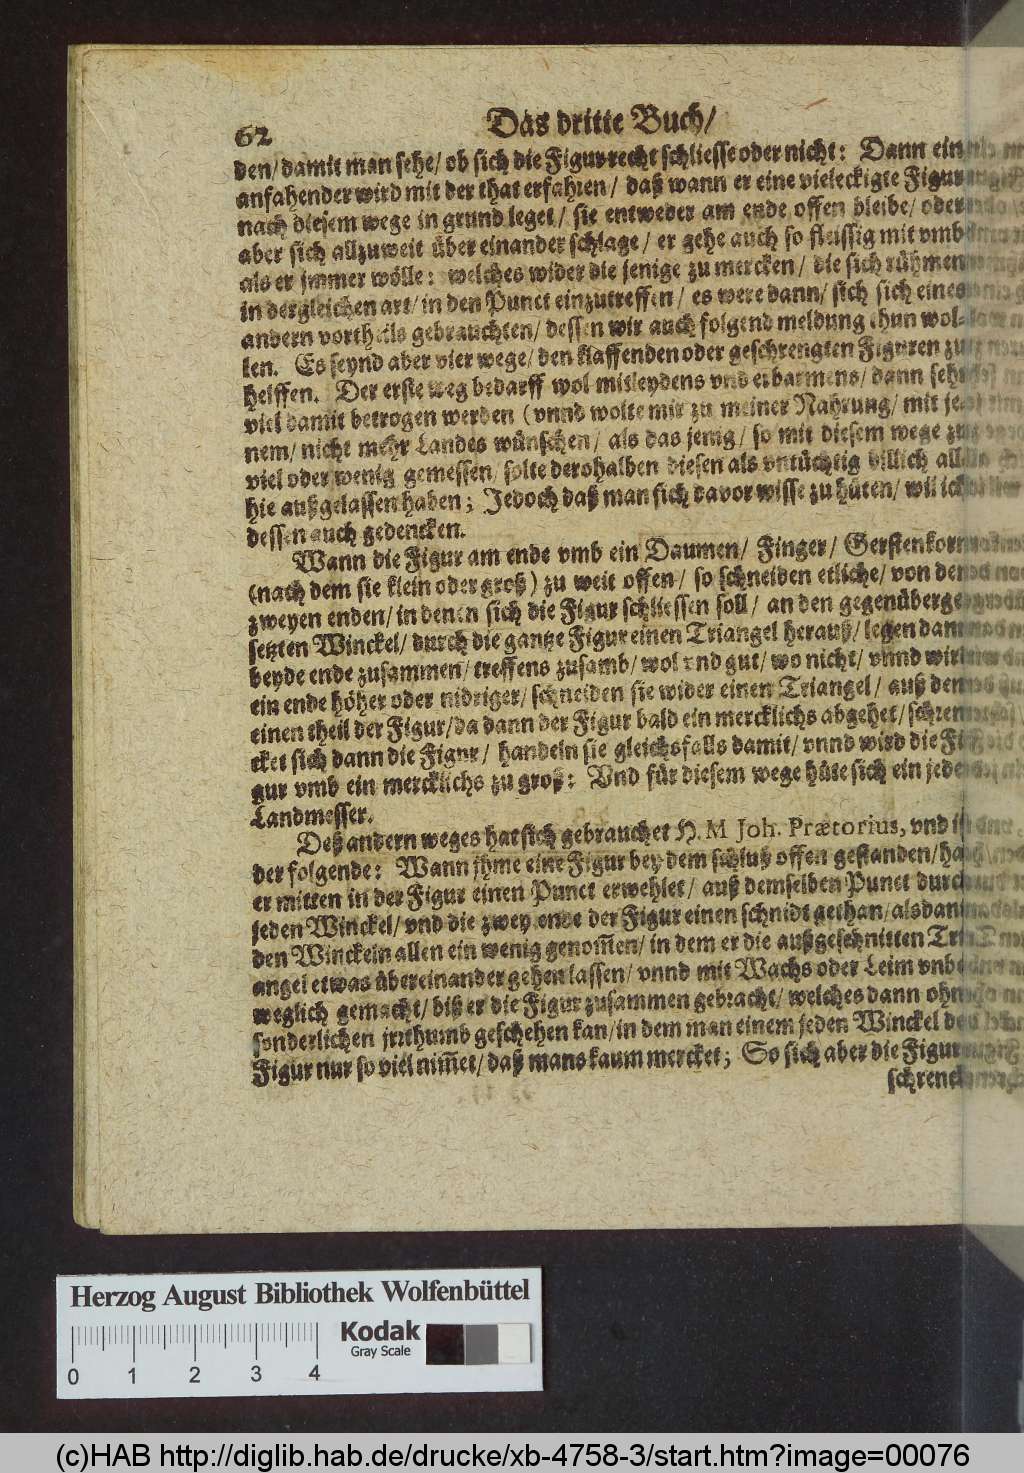 62
Das dritte Buch/
den/ damit man sehe/ ob sich die Figur recht schliesse oder nicht: Dann ein
anfahender wird mit der that erfahren/ daß wann er eine vieleckigte Figur
nach diesem wege in grund leget/ sie entweder am ende offen bleibe/ oder
aber sich allzuweit über einander schlage/ er gehe auch so fleissig mit vmb
als er jmmer wölle: welches wider die jenige zu mercken/ die sich rühmen
in dergleichen art/ in den Punct einzutreffen/ es were dann/ sich sich eines
andern vortheils gebrauchten/ dessen wir auch folgend meldung thun wol-
len. Es seynd aber vier wege/ den klaffenden oder geschrengten Figuren zu
helffen. Der erste weg bedarff wol mitleydens vnd erbarmens/ dann sehr
viel damit betrogen werden (vnnd wolte mir zu meiner Nahrung/ mit je-
nem/ nicht mehr Landes wünschen/ als das jenig/ so mit diesem wege zu
viel oder wenig gemessen/ solte derohalben diesen als vntüchtig billich all-
hie außgelassen haben; Jedoch daß man sich davor wisse zu hüten/ wil ich
dessen auch gedencken.
Wann die Figur am ende vmb ein Daumen/ Finger/ Gerstenkorn
(nach dem sie klein oder groß) zu weit offen/ so schneiden etliche/ von den
zweyen enden/ in denen sich die Figur schliessen soll/ an den gegenüberge-
setzten Winckel/ durch die gantze Figur einen Triangel herauß/ legen dann
beyde ende zusammen/ treffens zusamb/ wol vnd gut/ wo nicht/ vnnd wird
ein ende höher oder nidriger/ schneiden sie wider einen Triangel/ auß dem
einen theil der Figur/ da dann der Figur bald ein mercklichs abgehet/ schren-
cket sich dann die Figur/ handeln sie gleichsfalls damit/ vnnd wird die Fi-
gur vmb ein mercklichs zu groß: Vnd für diesem wege hüte sich ein jeder
Landmesser.
Deß andern weges hat sich gebrauchet H. M Joh. Prætorius, vnd ist
der folgende: Wann jhme eine Figur bey dem schluß offen gestanden/ hat
er mitten in der Figur einen Punct erwehlet/ auß demselben Punct durch
jeden Winckel/ vnd die zwey ende der Figur einen schnidt gethan/ alsdann
den Winckeln allen ein wenig genom̃en/ in dem er die außgeschnitten Tri-
angel etwas übereinander gehen lassen/ vnnd mit Wachs oder Leim vnbe-
weglich gemacht/ biß er die Figur zusammen gebracht/ welches dann ohn
sonderlichen jrrthumb geschehen kan/ in dem man einem jeden Winckel der
Figur nur so viel nim̃et/ daß mans kaum mercket; So sich aber die Figur
schrencket
Herzog August Bibliothek Wolfenbüttel
Kodak
Gray Scale
0 1 2 3 4
(c)HAB http://diglib.hab.de/drucke/xb-4758-3/start.htm?image=00076